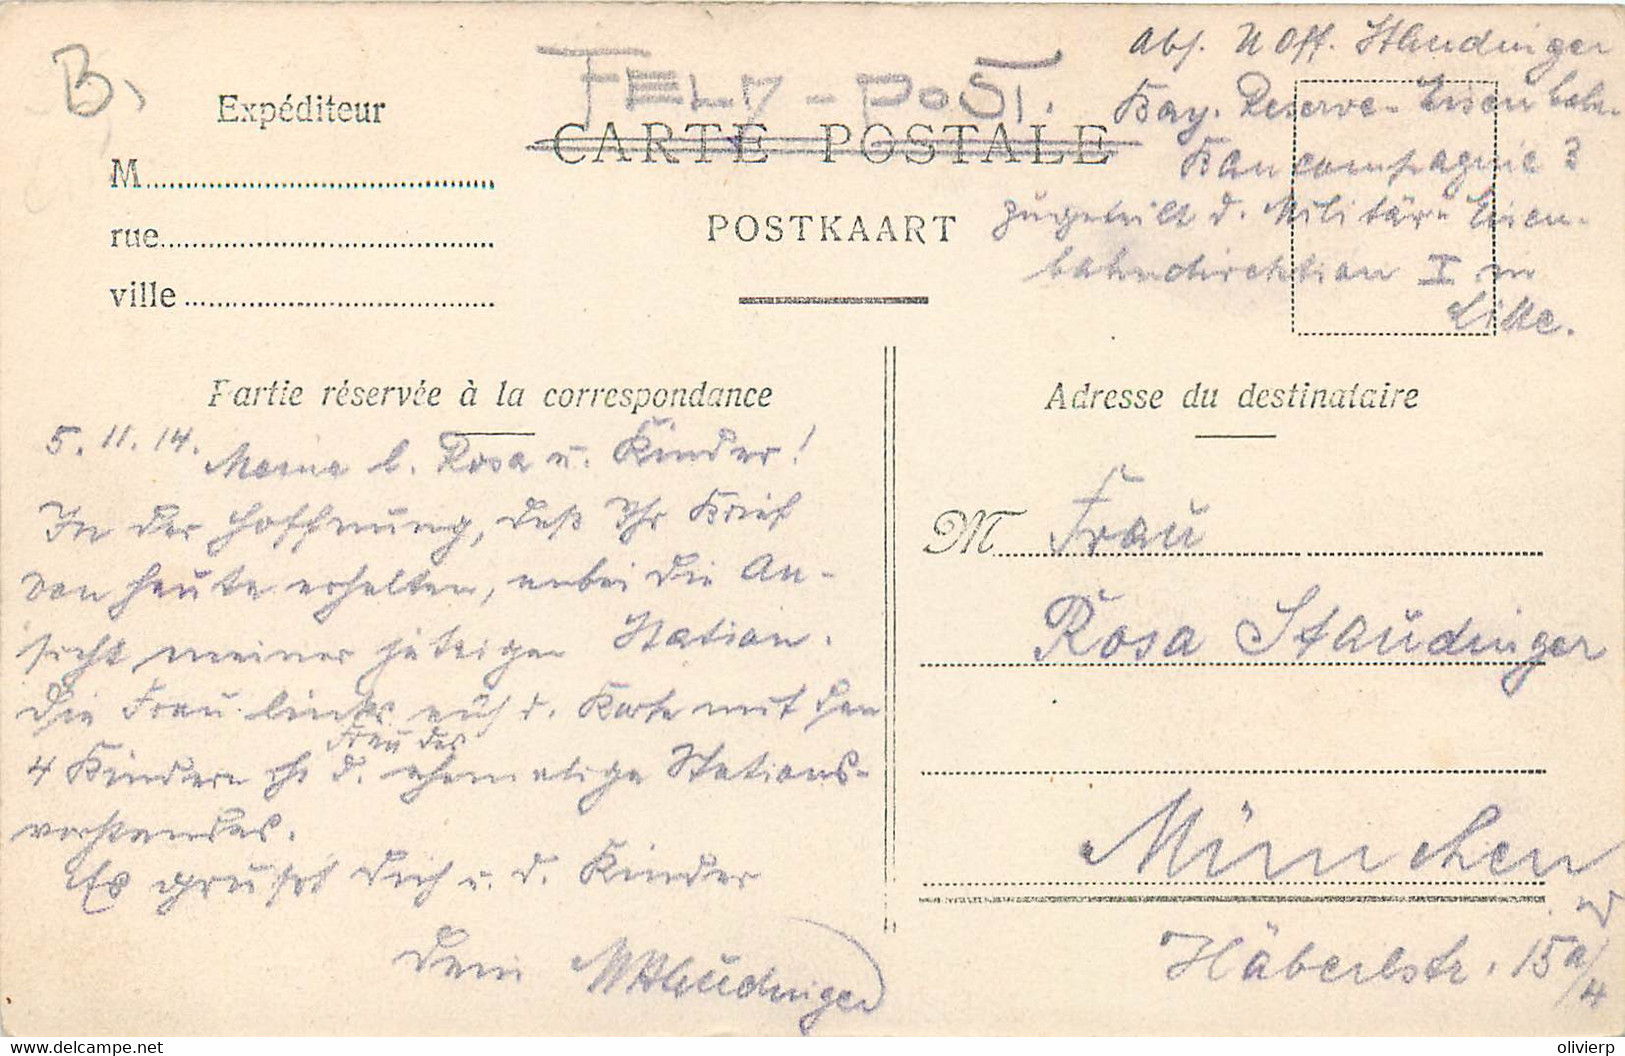 B,
FELD-POST.
Abs. Uoff. Staudinger
Bay. Reserve-Eisenbahn-
Baucompagnie 3
zugeteilt d. Militär-Eisen-
bahndirektion I in
Lille.
Expéditeur
M
rue
ville
CARTE POSTALE
POSTKAART
Partie réservée à la correspondance
5.11.14. Meine l. Rosa u. Kinder!
In der Hoffnung, daß Ihr Brief
von heute erhalten, anbei die An-
sicht meiner jetzigen Station.
Die Frau links auf d. Karte mit den
4 Kindern ist d. Frau des ehemalige Stations-
vorstandes.
Es grüßt Dich u. d. Kinder
Dein Staudinger
Adresse du destinataire
M Frau
Rosa Staudinger
München
Häberlstr. 15a/4
olivierp